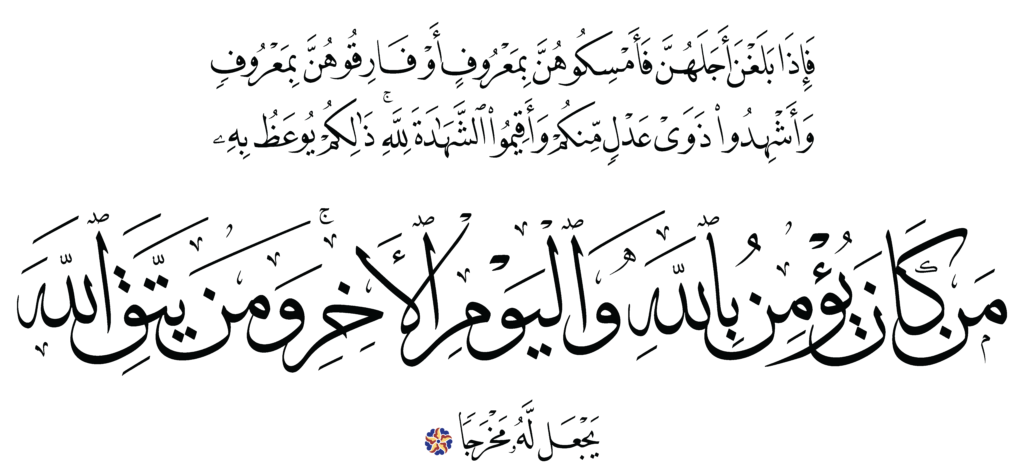 فَإِذَا بَلَغْنَ أَجَلَهُنَّ فَأَمْسِكُوهُنَّ بِمَعْرُوفٍ أَوْ فَارِقُوهُنَّ بِمَعْرُوفٍ
وَأَشْهِدُوا۟ ذَوَىْ عَدْلٍ مِّنكُمْ وَأَقِيمُوا۟ ٱلشَّهَـٰدَةَ لِلَّهِ ۚ ذَٰلِكُمْ يُوعَظُ بِهِۦ
مَن كَانَ يُؤْمِنُ بِٱللَّهِ وَٱلْيَوْمِ ٱلْـَٔاخِرِ ۚ وَمَن يَتَّقِ ٱللَّهَ
يَجْعَل لَّهُۥ مَخْرَجًا